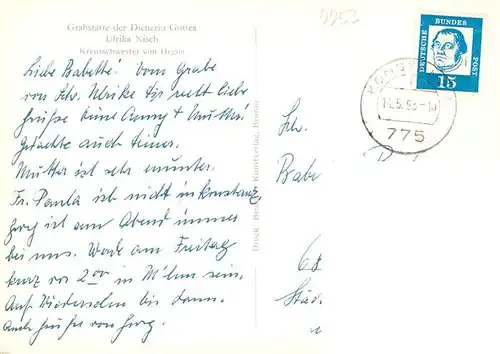 Grabstätte der Dienerin Gottes
Ulrika Nisch
Kreuzschwester von Hegne
Liebe Babette! Vom Grabe
von Schw. Ulrike Dir recht liebe
Grüße Deine Anny + Mutti.
Gedachte auch Deiner.
Mutter ist sehr munter.
Fr. Paula ist nicht in Konstanz,
Georg ist am Abend immer
bei uns. Werde am Freitag
kurz vor 2.00 in M'hm sein.
Auf Wiedersehen bis dann.
Auch Grüße von Georg.
DEUTSCHE BUNDES POST
15
775
Schw.
Babe
68
Städ